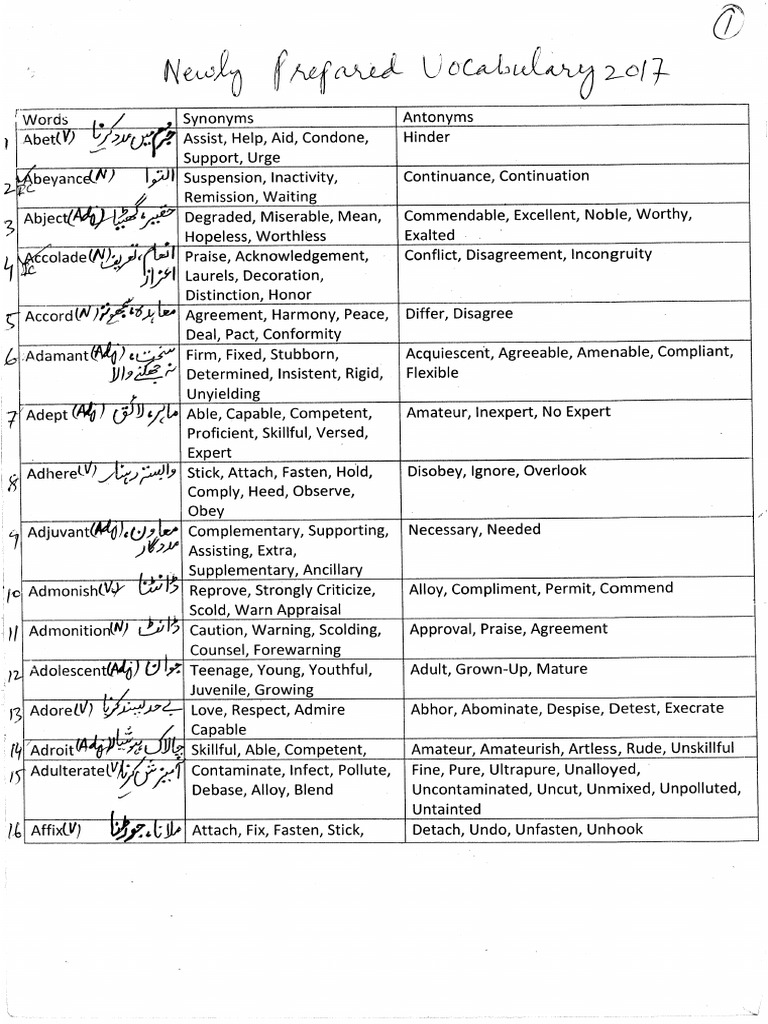 1
Newly Prepared Vocabulary 2017
Words Synonyms Antonyms
1 Abet(V) جرم میں مدد کرنا Assist, Help, Aid, Condone, Hinder
Support, Urge
2 Abeyance(N) التوا Suspension, Inactivity, Continuance, Continuation
Remission, Waiting
3 Abject(Adj) حقیر، گھٹیا Degraded, Miserable, Mean, Commendable, Excellent, Noble, Worthy,
Hopeless, Worthless Exalted
4 Accolade(N) انعام، تعریف Praise, Acknowledgement, Conflict, Disagreement, Incongruity
اعزاز Laurels, Decoration,
Distinction, Honor
5 Accord(N) معاہدہ، سمجھوتہ Agreement, Harmony, Peace, Differ, Disagree
Deal, Pact, Conformity
6 Adamant(Adj) سخت، Firm, Fixed, Stubborn, Acquiescent, Agreeable, Amenable, Compliant,
نہ جھکنے والا Determined, Insistent, Rigid, Flexible
Unyielding
7 Adept(Adj) ماہر، لائق Able, Capable, Competent, Amateur, Inexpert, No Expert
Proficient, Skillful, Versed,
Expert
8 Adhere(V) وابستہ رہنا Stick, Attach, Fasten, Hold, Disobey, Ignore, Overlook
Comply, Heed, Observe,
Obey
9 Adjuvant(Adj) معاون، Complementary, Supporting, Necessary, Needed
مددگار Assisting, Extra,
Supplementary, Ancillary
10 Admonish(V) ڈانٹنا Reprove, Strongly Criticize, Alloy, Compliment, Permit, Commend
Scold, Warn Appraisal
11 Admonition(N) ڈانٹ Caution, Warning, Scolding, Approval, Praise, Agreement
Counsel, Forewarning
12 Adolescent(Adj) جوان Teenage, Young, Youthful, Adult, Grown-Up, Mature
Juvenile, Growing
13 Adore(V) بے حد پسند کرنا Love, Respect, Admire Abhor, Abominate, Despise, Detest, Execrate
Capable
14 Adroit(Adj) چالاک ہوشیار Skillful, Able, Competent, Amateur, Amateurish, Artless, Rude, Unskillful
15 Adulterate(V) آمیزش کرنا Contaminate, Infect, Pollute, Fine, Pure, Ultrapure, Unalloyed,
Debase, Alloy, Blend Uncontaminated, Uncut, Unmixed, Unpolluted,
Untainted
16 Affix(V) ملانا، جوڑنا Attach, Fix, Fasten, Stick, Detach, Undo, Unfasten, Unhook